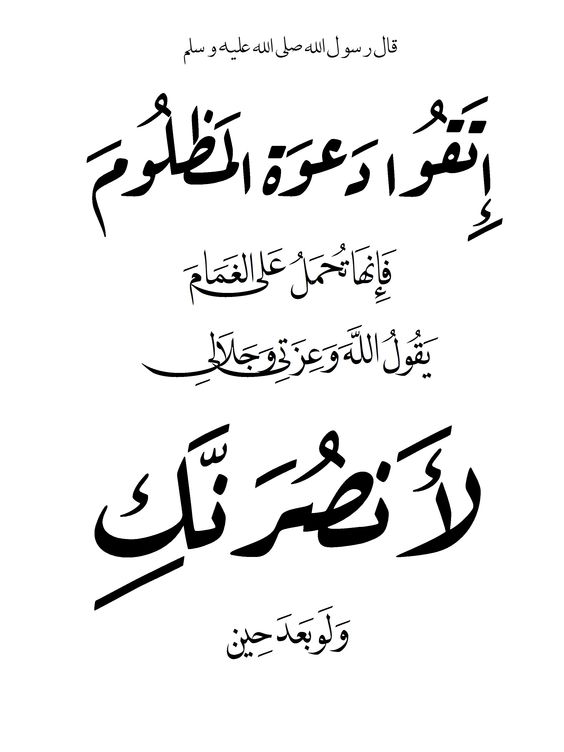 قال رسول الله صلى الله عليه و سلم
إِتَقُوا دَعوَة المَظلُومَ
فَإِنهَا تُحمَلُ عَلى الغَمَامَ
يَقُولُ اللَّهَ وَعِزَتِي وَجَلَالِي
لأَنصُرَنَّكِ
وَلَو بَعدَ حِين